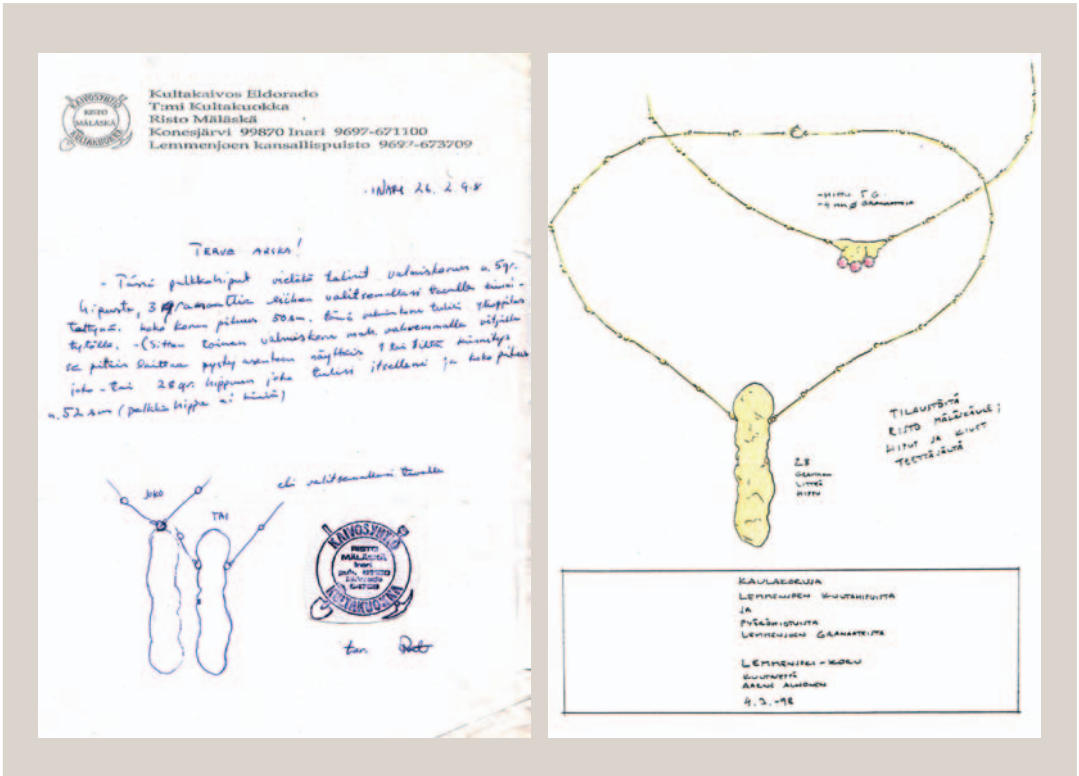 KAIVOSYHTIÖ
RISTO
MÄLÄSKÄ
KULTAKUOKKA
Kultakaivos Eldorado
T:mi Kultakuokka
Risto Mäläskä
Konesjärvi 99870 Inari 9697-671100
Lemmenjoen kansallispuisto 9697-673709
INARI 26. 2 98
TERVE ARSKA!
- Tässä palkkahiput vielätä tulisit valmiskorun n. 5gr.
hipusta, 3 granaattia siihen valitsemallasi tavalla kiinni-
tettynä. koko korun pituus 50 sm. tämä
tytölle. - (Sitten toinen valmiskoru
se pitäis laittaa pystyasentoon näyttäis 1 tai 2:lta kiinnitys
joko - tai 28gr. hippuun joka tulisi itselleni ja koko pituus
n. 52 sm (palkkahippu ei kiinni)
JOKO
TAI
eli valitsemallasi tavalla
KAIVOSYHTIÖ
RISTO
MÄLÄSKÄ
Inari
puh.
Eldorado
KULTAKUOKKA
- HIPPU 5 G.
- 4 MM Ø GRANAATTEJA
28
GRAMMAN
LITTEÄ
HIPPU
TILAUSTÖITÄ
RISTO MÄLÄSKÄLLE;
HIPUT JA KIVET
TEETTÄJÄLTÄ
KAULAKORUJA
LEMMENJOEN KULTAHIPUISTA
JA
PYÖRÖHIOTUISTA
LEMMENJOEN GRANAATEISTA
LEMMENJOKI - KORU
KULTASEPPÄ
AARNE ALHONEN
4.3.-98